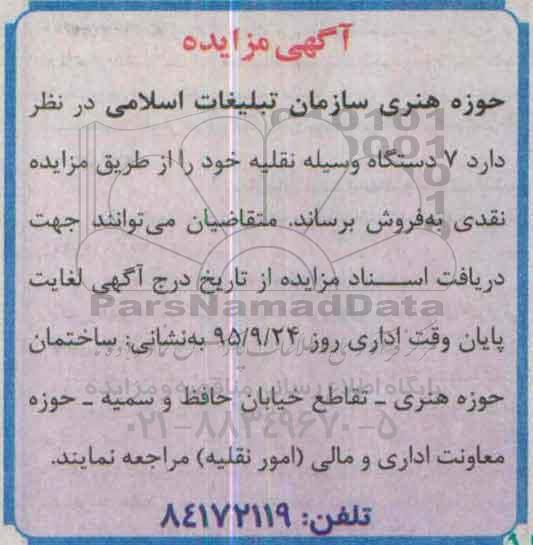 آگهی مزایده
حوزه هنری سازمان تبلیغات اسلامی در نظر
دارد ۷ دستگاه وسیله نقلیه خود را از طریق مزایده
نقدی به‌فروش برساند. متقاضیان می‌توانند جهت
دریافت اسناد مزایده از تاریخ درج آگهی لغایت
ParsNamadData
پایان وقت اداری روز ۹۵/۹/۲۴ به‌نشانی: ساختمان
پایگاه اطلاع رسانی مناقصه و مزایده
حوزه هنری ـ تقاطع خیابان حافظ و سمیه ـ حوزه
۰۲۱-۸۸۳۴۹۶۷۰-۵
معاونت اداری و مالی (امور نقلیه) مراجعه نمایند.
تلفن: ۸۴۱۷۲۱۱۹